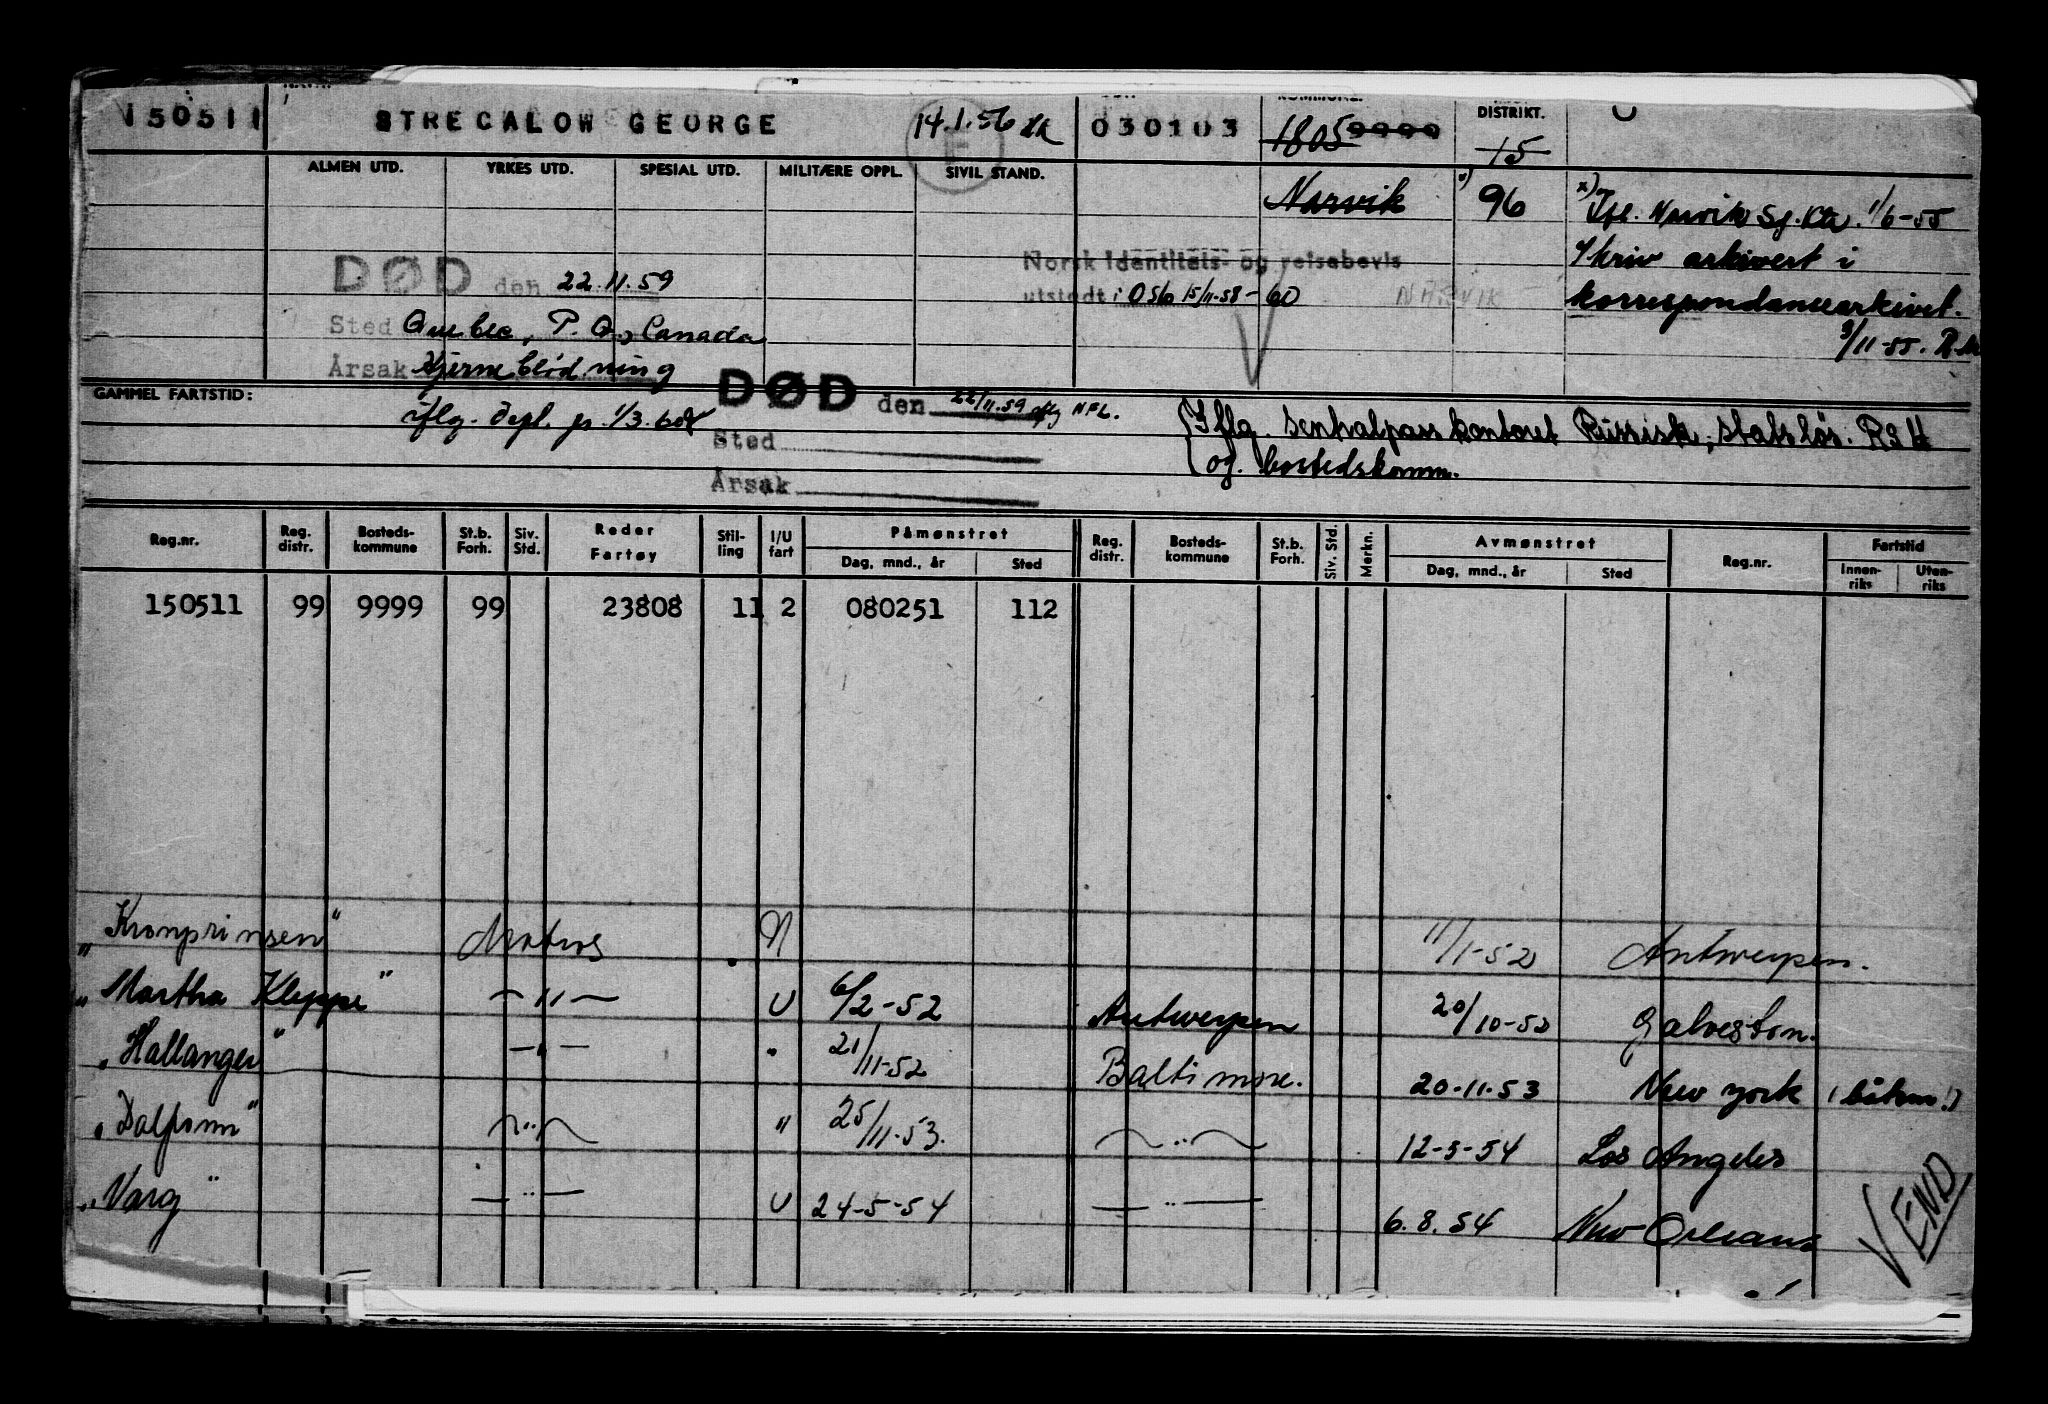 150511 STRECALOW GEORGE 14.1.56 030103 1805 9999 DISTRIKT. 15
ALMEN UTD. YRKES UTD. SPESIAL UTD. MILITÆRE OPPL. SIVIL STAND.
Narvik x) 96 x) Ifl. Narvik Sj.ktr. 1/6-55
skriv arkivert i
korrespondansearkivet.
3/11-55.
Norsk identitets- og reisebevis
utstedt i Oslo 15/11.58-60 NARVIK
DØD den 22.11.59
Sted Quebec, P.Q., Canada
Årsak Hjerneblødning
iflg. depl. pr. 1/3.60
GAMMEL FARTSTID:
DØD den 22/11.59 iflg NPL.
Sted
Årsak
Iflg. sentralpasskontoret Russisk, statsløs.
og. bostedskomm.
Reg.nr. Reg. distr. Bosteds-kommune St.b. Forh. Siv. Std. Reder Fartøy Stil-ling I/U fart Påmønstret Dag, mnd., år Sted Reg. distr. Bosteds-kommune St.b. Forh. Siv. Std. Merkn. Avmønstret Dag, mnd., år Sted Reg.nr. Fartstid Innen-riks Uten-riks
150511 99 9999 99 23808 11 2 080251 112
„Kronprinsen" Matros 11/1-52 Antwerpen.
„Martha Kleppe" —"— U 6/2-52 Antwerpen 20/10-52 Galveston.
„Hallanger" —"— " 21/11-52 Baltimore. 20-11-53 New York
„Dalfonn" —"— " 25/11-53. —"— 12-5-54 Los Angeles
„Varg" —"— U 24-5-54 —"— 6.8.54 New Orleans
VEND